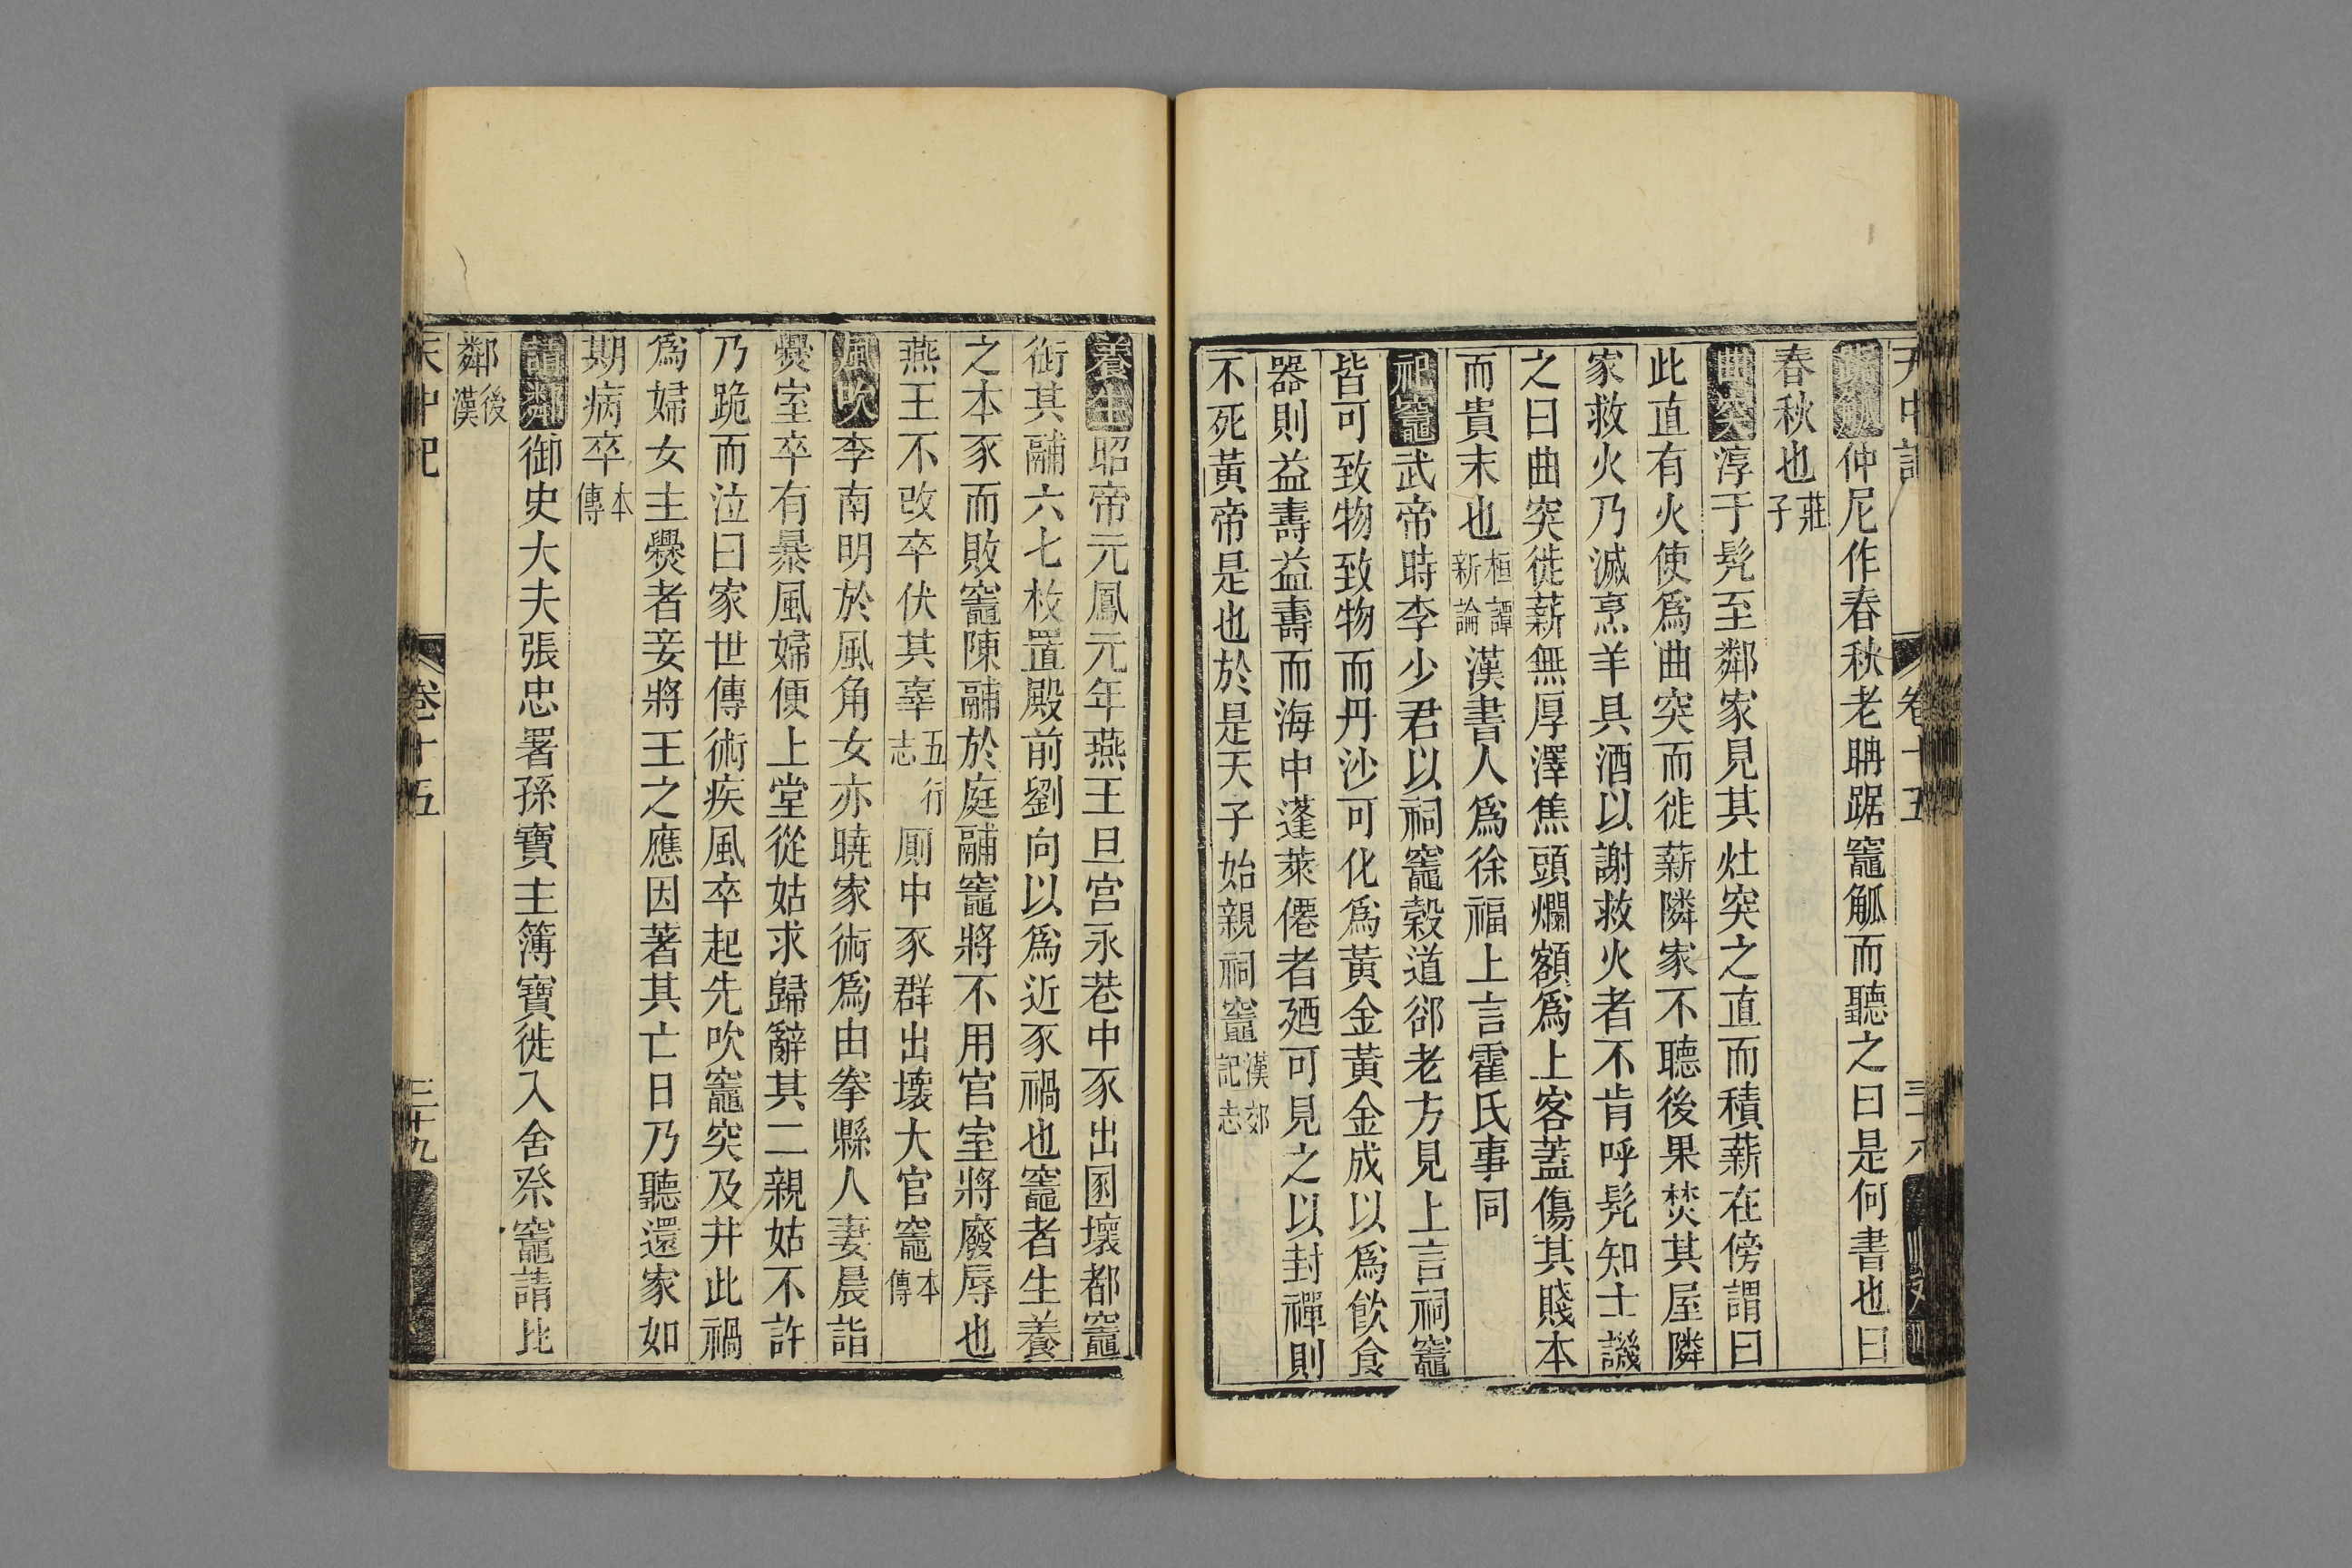 踞觚仲尼作春秋老聃踞竈觚而聽之曰是何書也曰
春秋也莊子
曲突淳于髡至鄰家見其灶突之直而積薪在傍謂曰
此直有火使爲曲突而徙薪隣家不聽後果焚其屋隣
家救火乃滅烹羊具酒以謝救火者不肯呼髡知士譏
之曰曲突徙薪無厚澤焦頭爛額爲上客蓋傷其賤本
而貴末也桓譚新論漢書人爲徐福上言霍氏事同
祀竈武帝時李少君以祠竈穀道郤老方見上言祠竈
皆可致物致物而丹沙可化爲黃金黃金成以爲飲食
器則益壽益壽而海中蓬萊僊者廼可見之以封禪則
不死黃帝是也於是天子始親祠竈漢郊記志
養生昭帝元鳳元年燕王旦宮永巷中豕出圂壞都竈
銜其鬴六七枚置殿前劉向以爲近豕禍也竈者生養
之本豕而敗竈陳鬴於庭鬴竈將不用宮室將廢辱也
燕王不改卒伏其辜五行志厠中豕群出壊大官竈本傳
風吹李南明於風角女亦曉家術爲由拳縣人妻晨詣
爨室卒有暴風婦便上堂從姑求歸辭其二親姑不許
乃跪而泣曰家世傳術疾風卒起先吹竈突及井此禍
爲婦女主爨者妾將王之應因著其亡日乃聽還家如
期病卒本傳
請鄰御史大夫張忠署孫寶主簿寶徙入舍祭竈請比
鄰後漢
天中記 卷十五 三十九